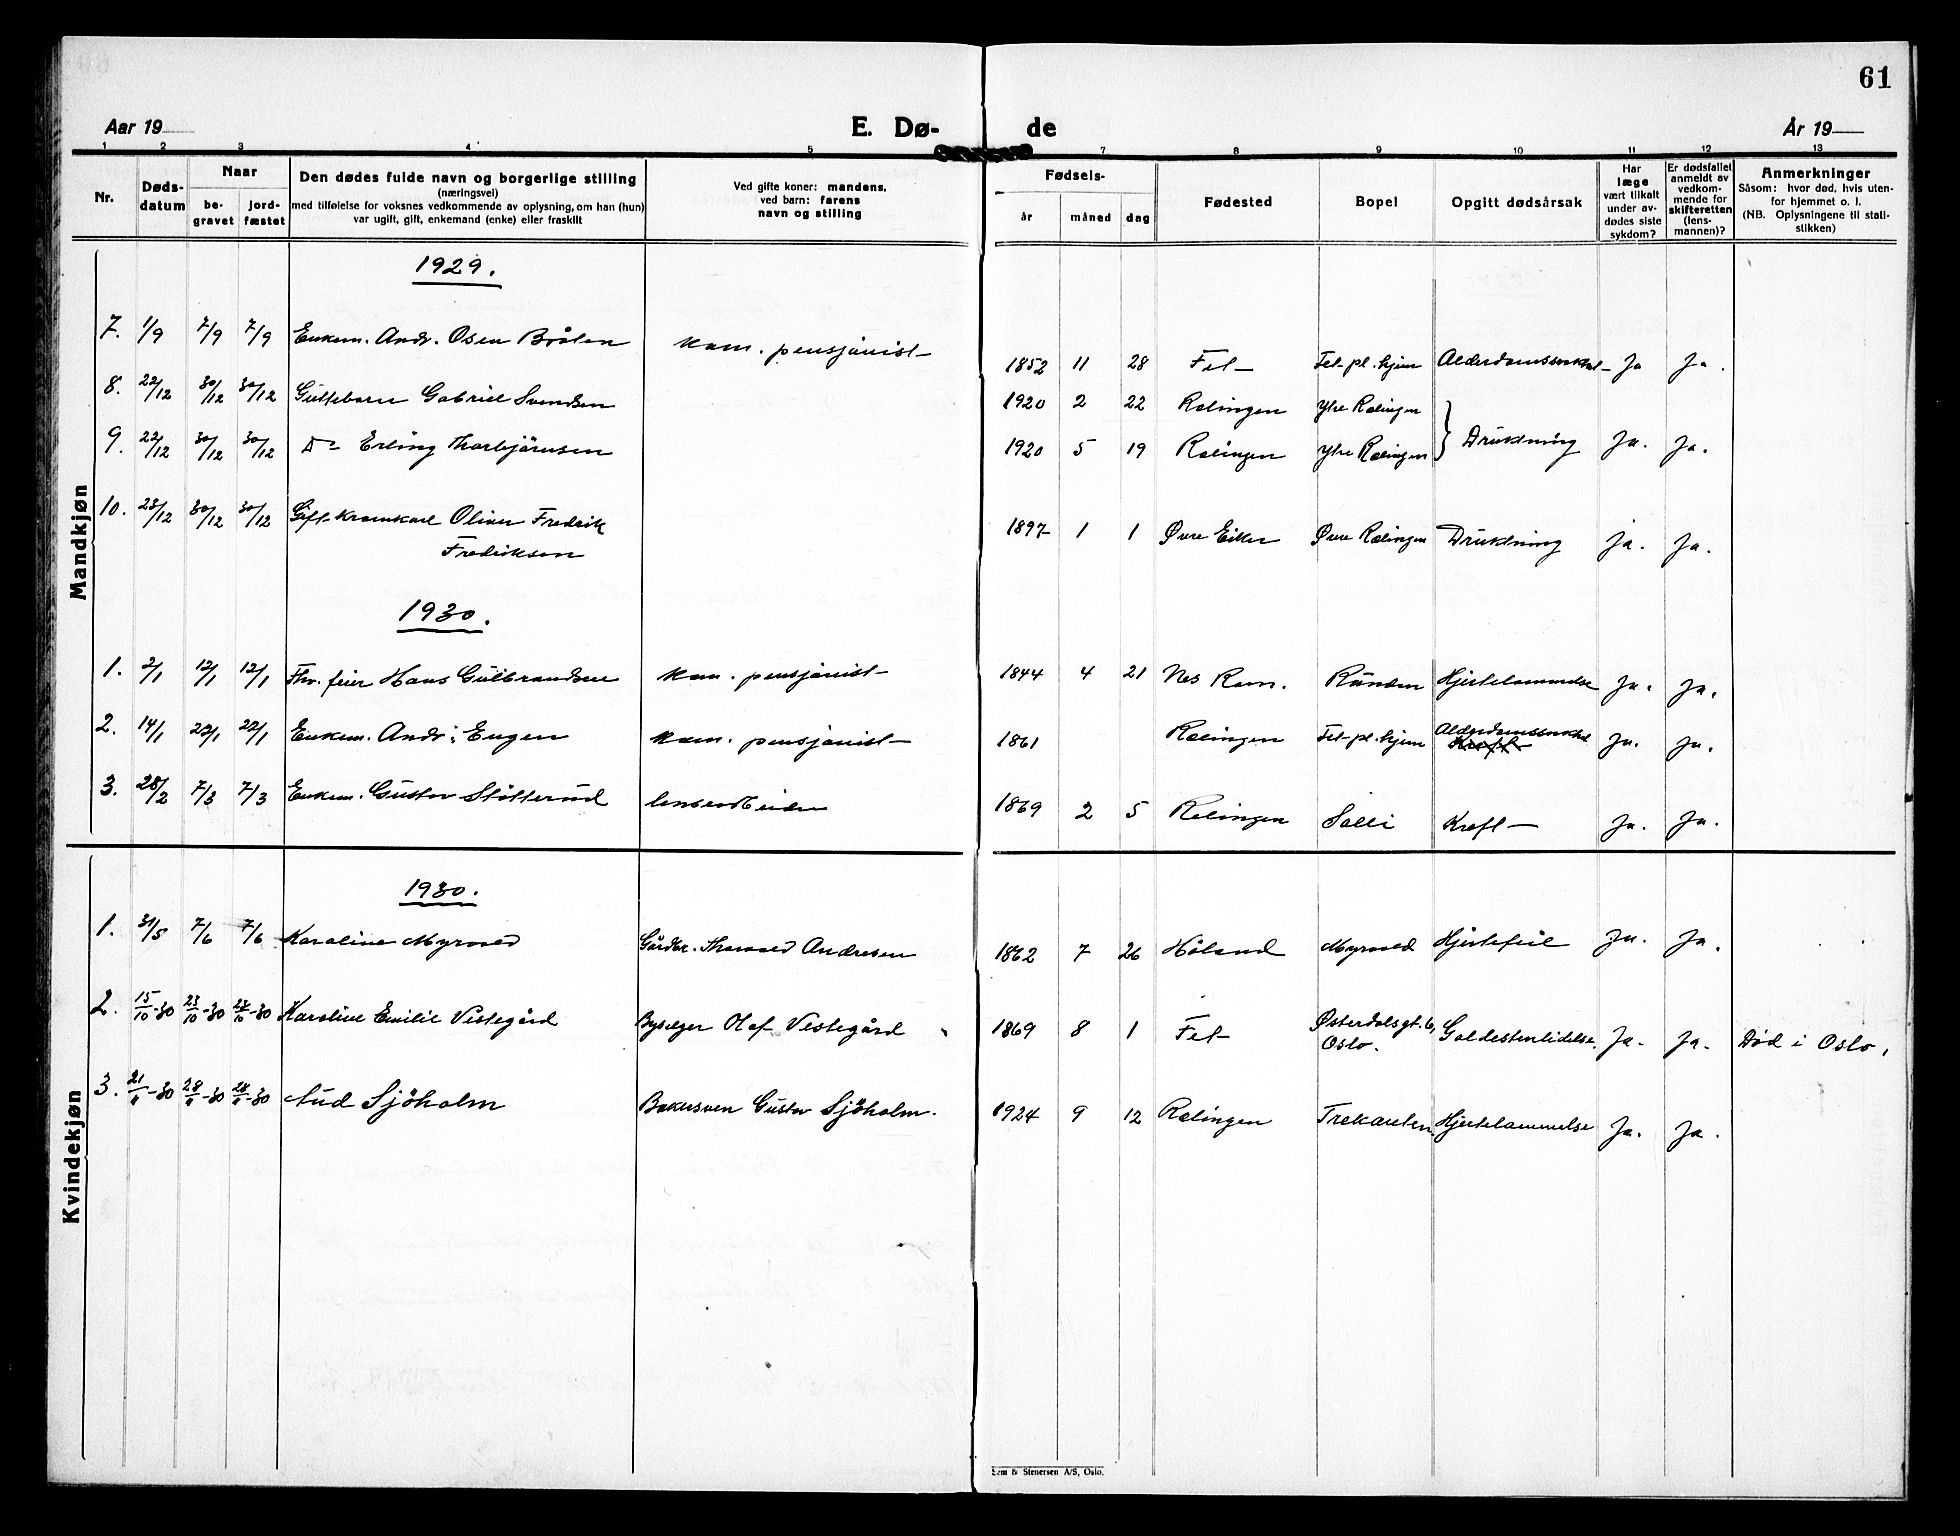 61
Aar 19
E. Dø-
de
År 19
1 2 3 4 5 7 8 9 10 11 12 13
Nr.
Døds-
datum
Naar
be-
gravet
jord-
fæstet
Den dødes fulde navn og borgerlige stilling
(næringsvei)
med tilføielse for voksnes vedkommende av oplysning, om han (hun)
var ugift, gift, enkemand (enke) eller fraskilt
Ved gifte koner: mandens,
ved barn: farens
navn og stilling
Fødsels-
år måned dag
Fødested
Bopel
Opgitt dødsårsak
Har
læge
vært tilkalt
under av-
dødes siste
sykdom?
Er dødsfallet
anmeldt av
vedkom-
mende for
skifteretten
(lens-
mannen)?
Anmerkninger
Såsom: hvor død, hvis uten-
for hjemmet o. l.
(NB. Oplysningene til stati-
stikken)
Mandkjøn
1929.
7. 1/9 7/9 7/9 Enkem. Andr. Osen Bråten kom. pensjonist 1852 11 28 Fet Fet pl. hjem Ja Ja.
8. 22/12 30/12 30/12 Guttebarn Gabriel Svendsen 1920 2 22 Rælingen Ytre Rælingen
9. 22/12 30/12 30/12 Do Erling Thorbjørnsen 1920 5 19 Rælingen Ytre Rælingen Drukning Ja. Ja.
10. 23/12 30/12 30/12 Gift Oliver Fredrik
Fredriksen 1897 1 1 Øvre Eiker Øvre Rælingen Drukning Ja. Ja.
1930.
1. 2/1 12/1 12/1 Fhv. feier Hans Gulbrandsen kom. pensjonist 1844 4 21 Nes Rom. Hjertelammelse Ja. Ja.
2. 14/1 22/1 22/1 Enkem. Andr. Engen kom. pensjonist 1861 Rælingen Fet pl. hjem Ja. Ja.
Kreft
3. 28/2 7/3 7/3 Enkem. Gustav Slåtterud lensearbeider 1869 2 5 Rælingen Salli Kreft Ja. Ja.
Kvindekjøn
1930.
1. 31/5 7/6 7/6 Karoline Myrvold Gårdbr. Thorvald Andresen 1862 7 26 Høland Myrvold Hjertefeil Ja. Ja.
2. 15/10-30 23/10-30 23/10-30 Karoline Emilie Vestegård Olaf Vestegård 1869 8 1 Fet Østerdalsgt. 6, Galdestenlidelse. Ja. Ja. Død i Oslo.
Oslo.
3. 21/11-30 28/11-30 28/11-30 Aud Sjöholm Gustav Sjöholm. 1924 9 12 Rælingen Trekanten. Hjertelammelse Ja. Ja.
Sem & Stenersen A/S, Oslo.